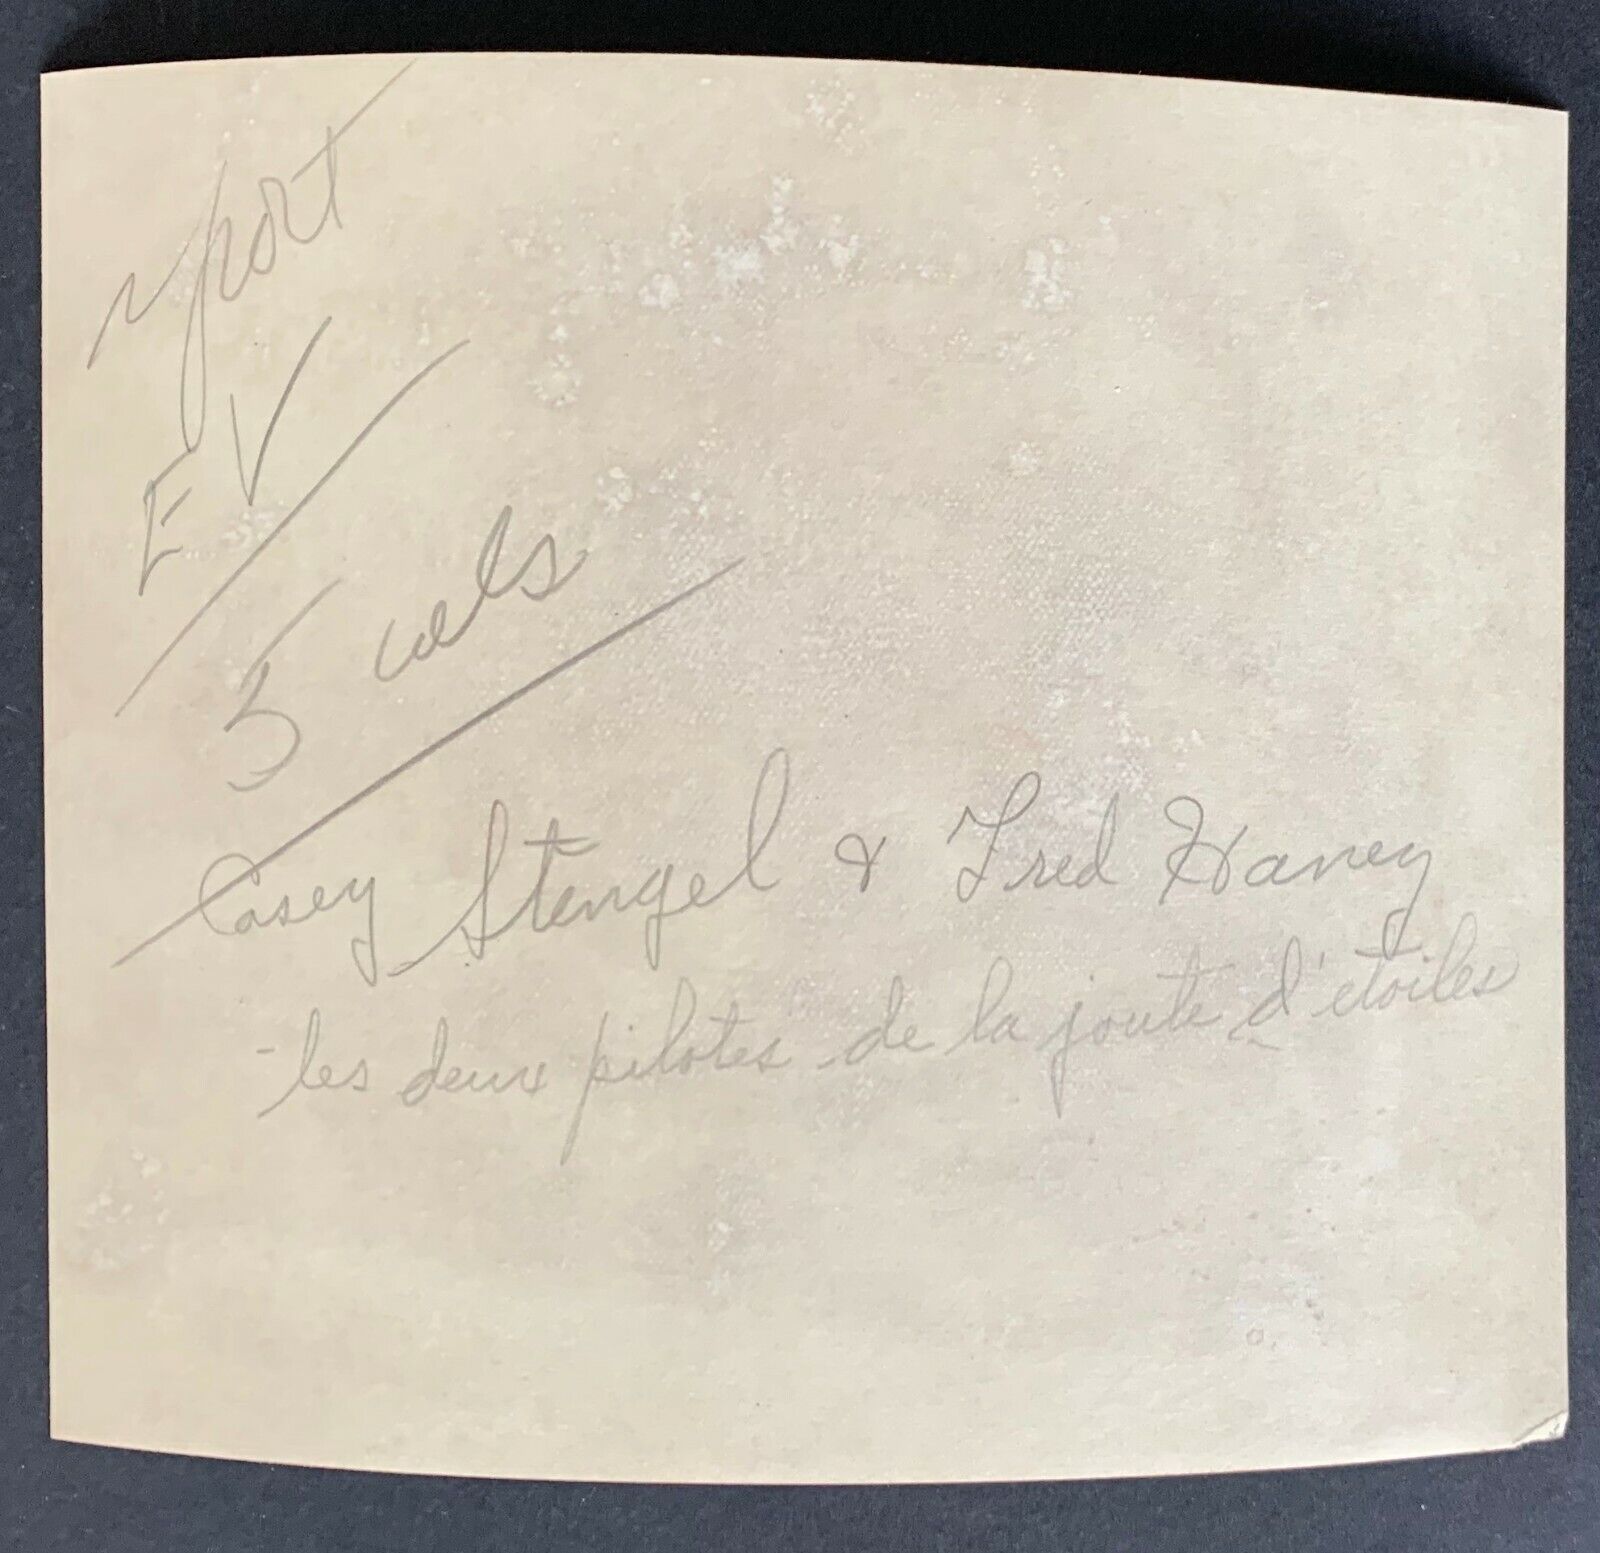 sport
EV
3 cols
Casey Stengel & Fred Haney
-les deux pilotes de la joute d'étoiles